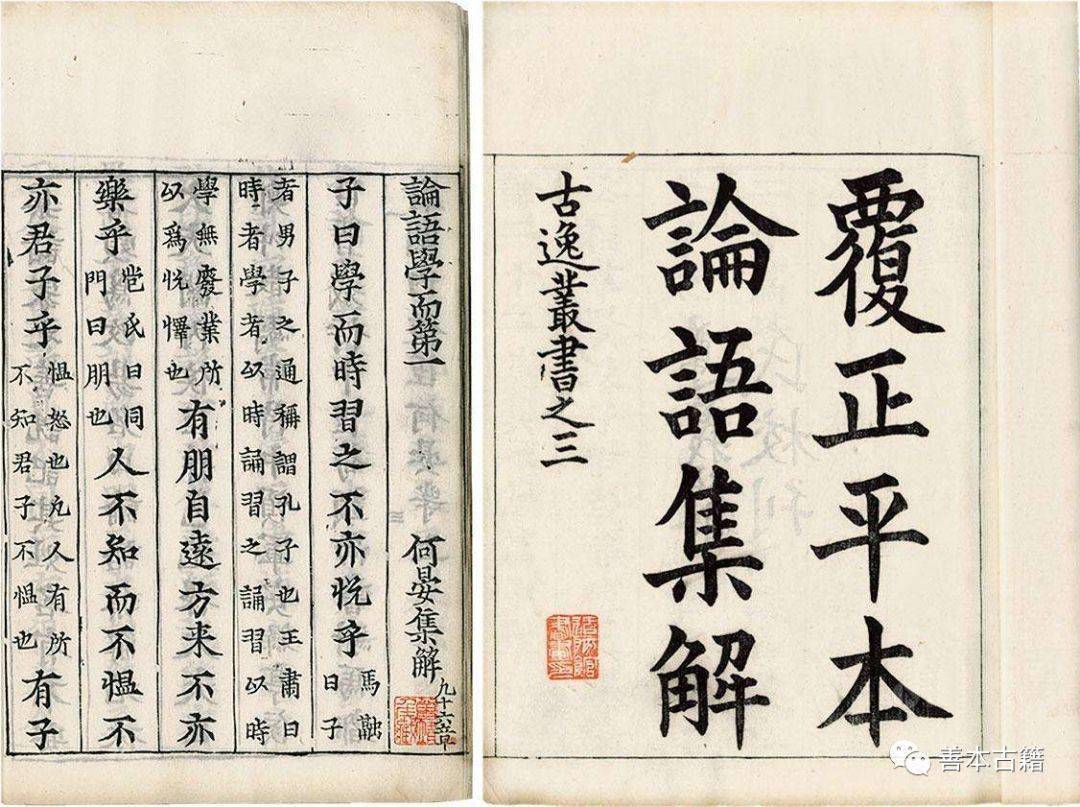 覆正平本
論語集解
古逸叢書之三
論語學而第一 何晏集解 凢十六章
子曰學而時習之不亦悦乎 馬融曰子
者男子之通稱謂孔子也王肅曰
時者學者以時誦習之誦習以時
學無廢業所以爲悦懌也 有朋自遠方来不亦
樂乎 苞氏曰同門曰朋也 人不知而不愠不
亦君子乎 愠怒也凢人有所不知君子不愠也 有子
善本古籍